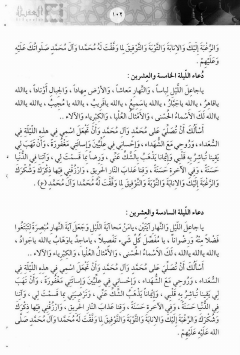 ١٠٢
وَالرَّغْبَةَ إِلَيْكَ وَالاِنَابَةَ وَالتَّوْبَةَ وَالتَّوْفِيقَ لِمَا وَفَّقْتَ لَهُ مُحَمَّدًا وَآلَ مُحَمَّدٍ صَلَوَاتُكَ عَلَيْهِ
وَعَلَيْهِمْ .
دُعاء اللَّيلة الخامسة والعِشرين :
يا جاعِلَ اللَّيْلِ لِباساً ، وَالنَّهارِ مَعاشاً ، وَالاَرْضِ مِهاداً ، وَالْجِبالِ أَوْتاداً ، يااَللهُ
ياقاهِرُ ، يااَللهُ ياجَبّارُ ، يااَللهُ ياسَميعُ ، يااَللهُ ياقَريبُ ، يااَللهُ يا مُجيبُ ، يااَللهُ يااَللهُ
يااَللهُ ، لَكَ الاَسْماءُ الْحُسْنى ، وَالاَمْثالُ الْعُلْيا ، وَالْكِبْرِياءُ وَالآلاءُ ..
أَسْأَلُكَ أَنْ تُصَلِّيَ عَلى مُحَمَّدٍ وَآلِ مُحَمَّدٍ وَأَنْ تَجْعَلَ اسْمي في هذِهِ اللَّيْلَةِ فِي
السُّعَداءِ ، وَرُوحي مَعَ الشُّهَداءِ ، وَإِحْساني في عِلِّيّينَ وَإِساءَتي مَغْفُورَةً ، وَأَنْ تَهَبَ لي
يَقيناً تُباشِرُ بِهِ قَلْبي ، وَإِيماناً يُذْهِبُ الشَّكَّ عَنّي ، وَرِضىً بِما قَسَمْتَ لي ، وَآتِنا فِي الدُّنْيا
حَسَنَةً ، وَفِي الآخِرَةِ حَسَنَةً ، وَقِنا عَذابَ النّارِ الْحَريقِ ، وَارْزُقْني فيها ذِكْرَكَ وَشُكْرَكَ
وَالرَّغْبَةَ إِلَيْكَ وَالاِنابَةَ وَالتَّوْبَةَ وَالتَّوْفيقَ لِما وَفَّقْتَ لَهُ مُحَمَّداً وَآلَ مُحَمَّدٍ (ع) .
دعاء اللَّيلة السادسة والعِشرين :
يا جاعِلَ اللَّيْلِ وَالنَّهارِ آيَتَيْنِ ، يامَنْ مَحا آيَةَ اللَّيْلِ وَجَعَلَ آيَةَ النَّهارِ مُبْصِرَةً لِتَبْتَغُوا
فَضْلاً مِنْهُ وَرِضْواناً ، يا مُفَصِّلَ كُلِّ شَيْءٍ تَفْصيلاً ، يا ماجِدُ ياوَهّابُ يااَللهُ ياجَوادُ ،
يااَللهُ يااَللهُ يااَللهُ ، لَكَ الاَسْماءُ الْحُسْنى ، وَالاَمْثالُ الْعُلْيا ، وَالْكِبْرِياءُ وَالآلاءُ ..
أَسْأَلُكَ أَنْ تُصَلِّيَ عَلى مُحَمَّدٍ وَآلِ مُحَمَّدٍ وَأَنْ تَجْعَلَ اسْمي في هذِهِ اللَّيْلَةِ فِي
السُّعَداءِ ، وَرُوحي مَعَ الشُّهَداءِ ، وَإِحْساني في عِلِّيّينَ ، وَإِساءَتي مَغْفُورَةً ، وَأَنْ تَهَبَ
لي يَقيناً تُباشِرُ بِهِ قَلْبي ، وَإِيماناً يُذْهِبُ الشَّكَّ عَنّي ، وَتُرْضِيَني بِما قَسَمْتَ لي ، وَآتِنا فِي
الدُّنْيا حَسَنَةً ، وَفِي الآخِرَةِ حَسَنَةً ، وَقِنا عَذابَ النّارِ الْحَريقِ ، وَارْزُقْني فيها ذِكْرَكَ
وَشُكْرَكَ وَالرَّغْبَةَ إِلَيْكَ وَالاِنابَةَ وَالتَّوْبَةَ وَالتَّوْفيقَ لِما وَفَّقْتَ لَهُ مُحَمَّداً وَآلَ مُحَمَّدٍ صَلَّى
اللهُ عَلَيْهِ وَعَلَيْهِمْ .